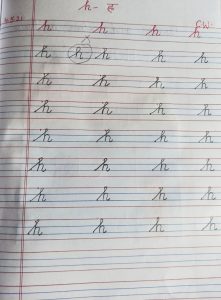 h - ह
h h h h
h h h h
h h h h
h h h h
h h h h
h h h h
h h h h
h h h h